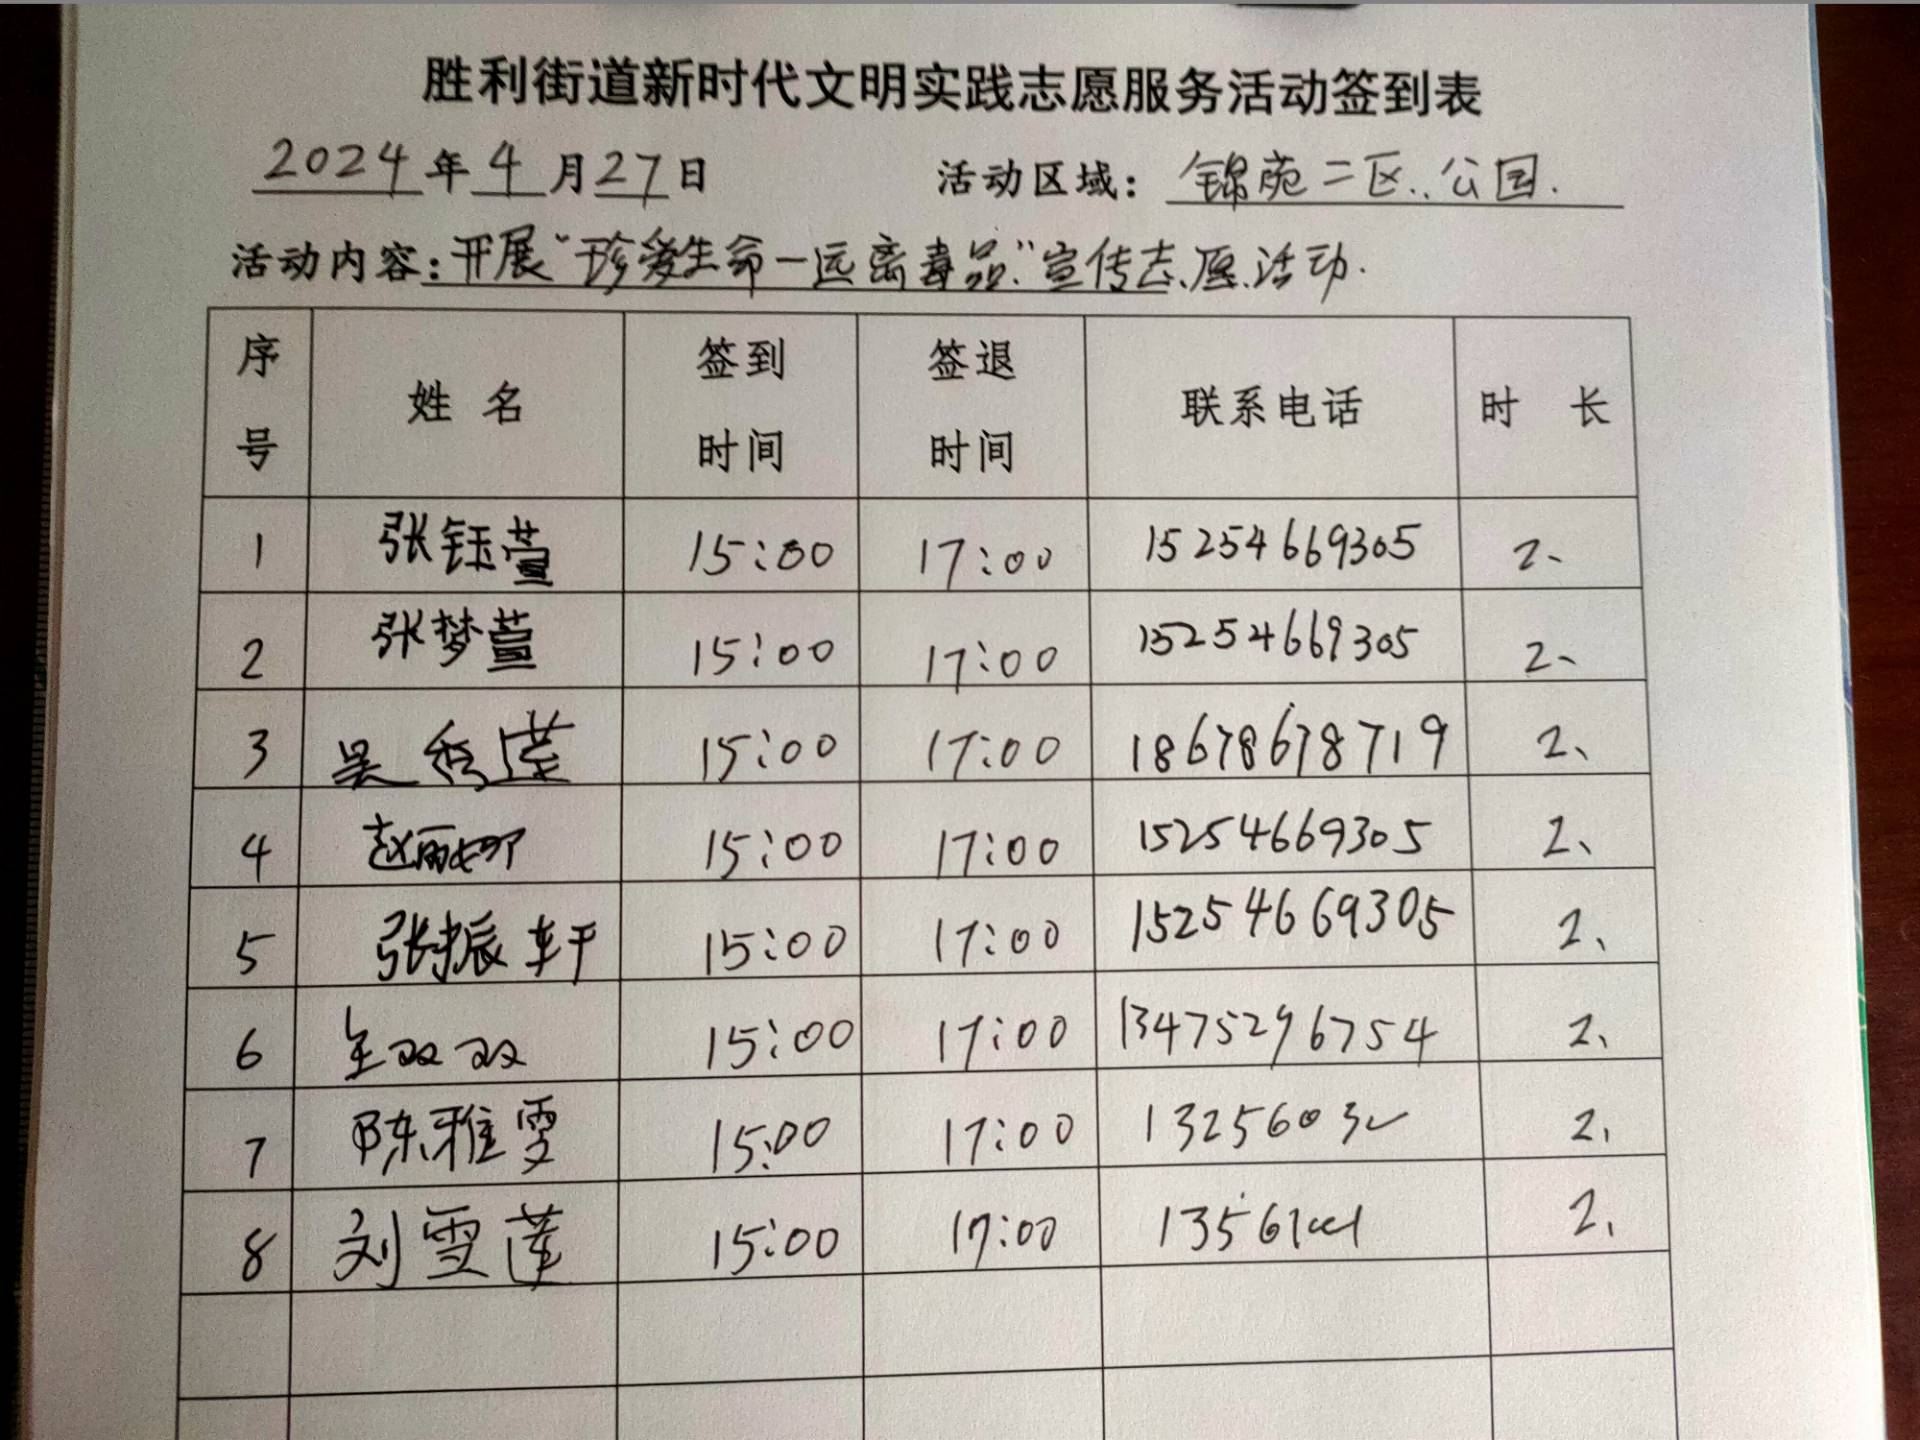 胜利街道新时代文明实践志愿服务活动签到表
2024年4月27日 活动区域: 锦苑二区..公园.
活动内容:开展“珍爱生命一远离毒品.”宣传志愿活动.
序号 姓名 签到时间 签退时间 联系电话 时长
1 张钰萱 15:00 17:00 15254669305 2、
2 张梦萱 15:00 17:00 15254669305 2、
3 吴秀莲 15:00 17:00 18678678719 2、
4 赵丽娜 15:00 17:00 15254669305 2、
5 张振轩 15:00 17:00 15254669305 2、
6 双双 15:00 17:00 13475296754 2、
7 陈雅雯 15:00 17:00 2、
8 刘雪莲 15:00 17:00 2、